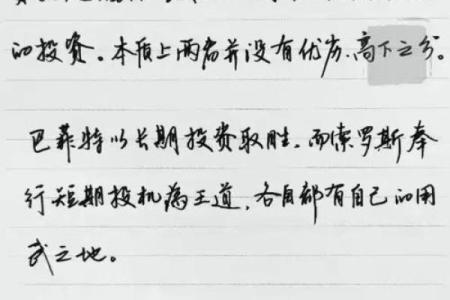 的投资。本质上两者并没有优劣、高下之分。
巴菲特以长期投资取胜，而索罗斯奉
行短期投机为王道，各自都有自己的用
武之地。